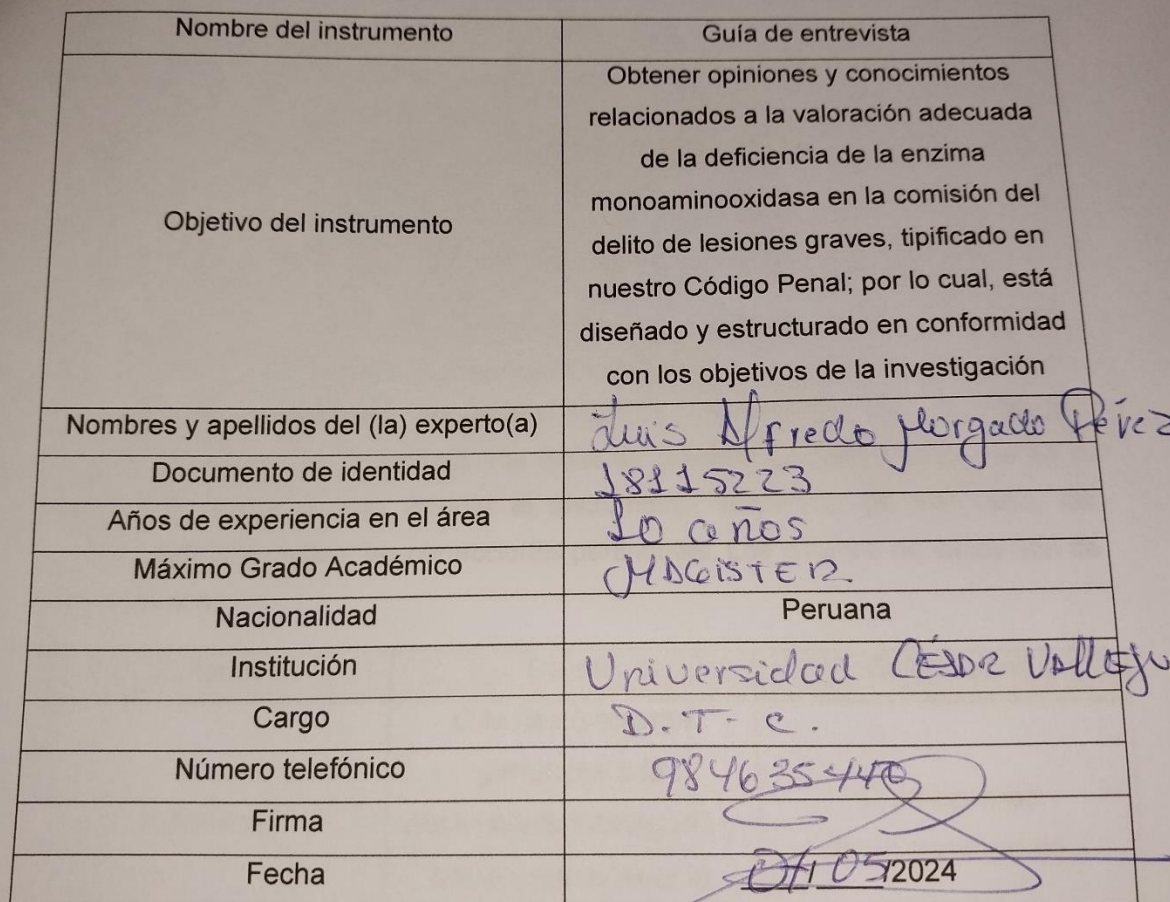 Nombre del instrumento
Guía de entrevista
Objetivo del instrumento
Obtener opiniones y conocimientos
relacionados a la valoración adecuada
de la deficiencia de la enzima
monoaminooxidasa en la comisión del
delito de lesiones graves, tipificado en
nuestro Código Penal; por lo cual, está
diseñado y estructurado en conformidad
con los objetivos de la investigación
Nombres y apellidos del (la) experto(a)
Luis Alfredo Morgado Pérez
Documento de identidad
18115223
Años de experiencia en el área
10 años
Máximo Grado Académico
MAGISTER
Nacionalidad
Peruana
Institución
Universidad CÉSAR VALLEJO
Cargo
D.T-C.
Número telefónico
Firma
Fecha
05/2024